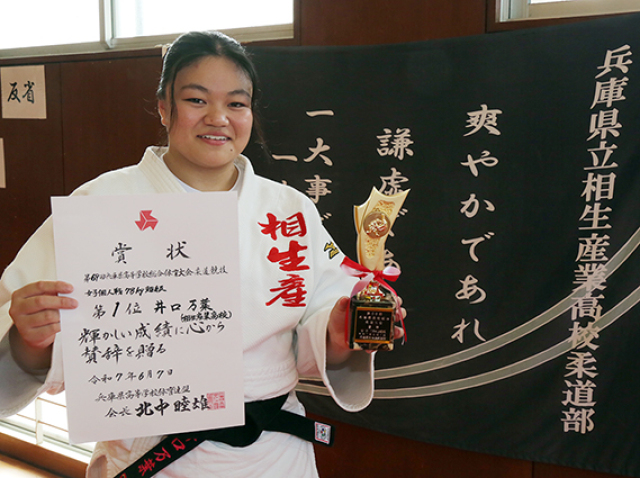 反省
賞状
第69回兵庫県高等学校総合体育大会柔道競技
女子個人戦78kg超級
第1位 井口万葉
(相生産業高校)
輝かしい成績に心から
賛辞を贈る
令和7年6月7日
兵庫県高等学校体育連盟
会長 北中睦雄
相生産
井口万葉
一大事
謙虚
爽やかであれ
兵庫県立相生産業高校柔道部